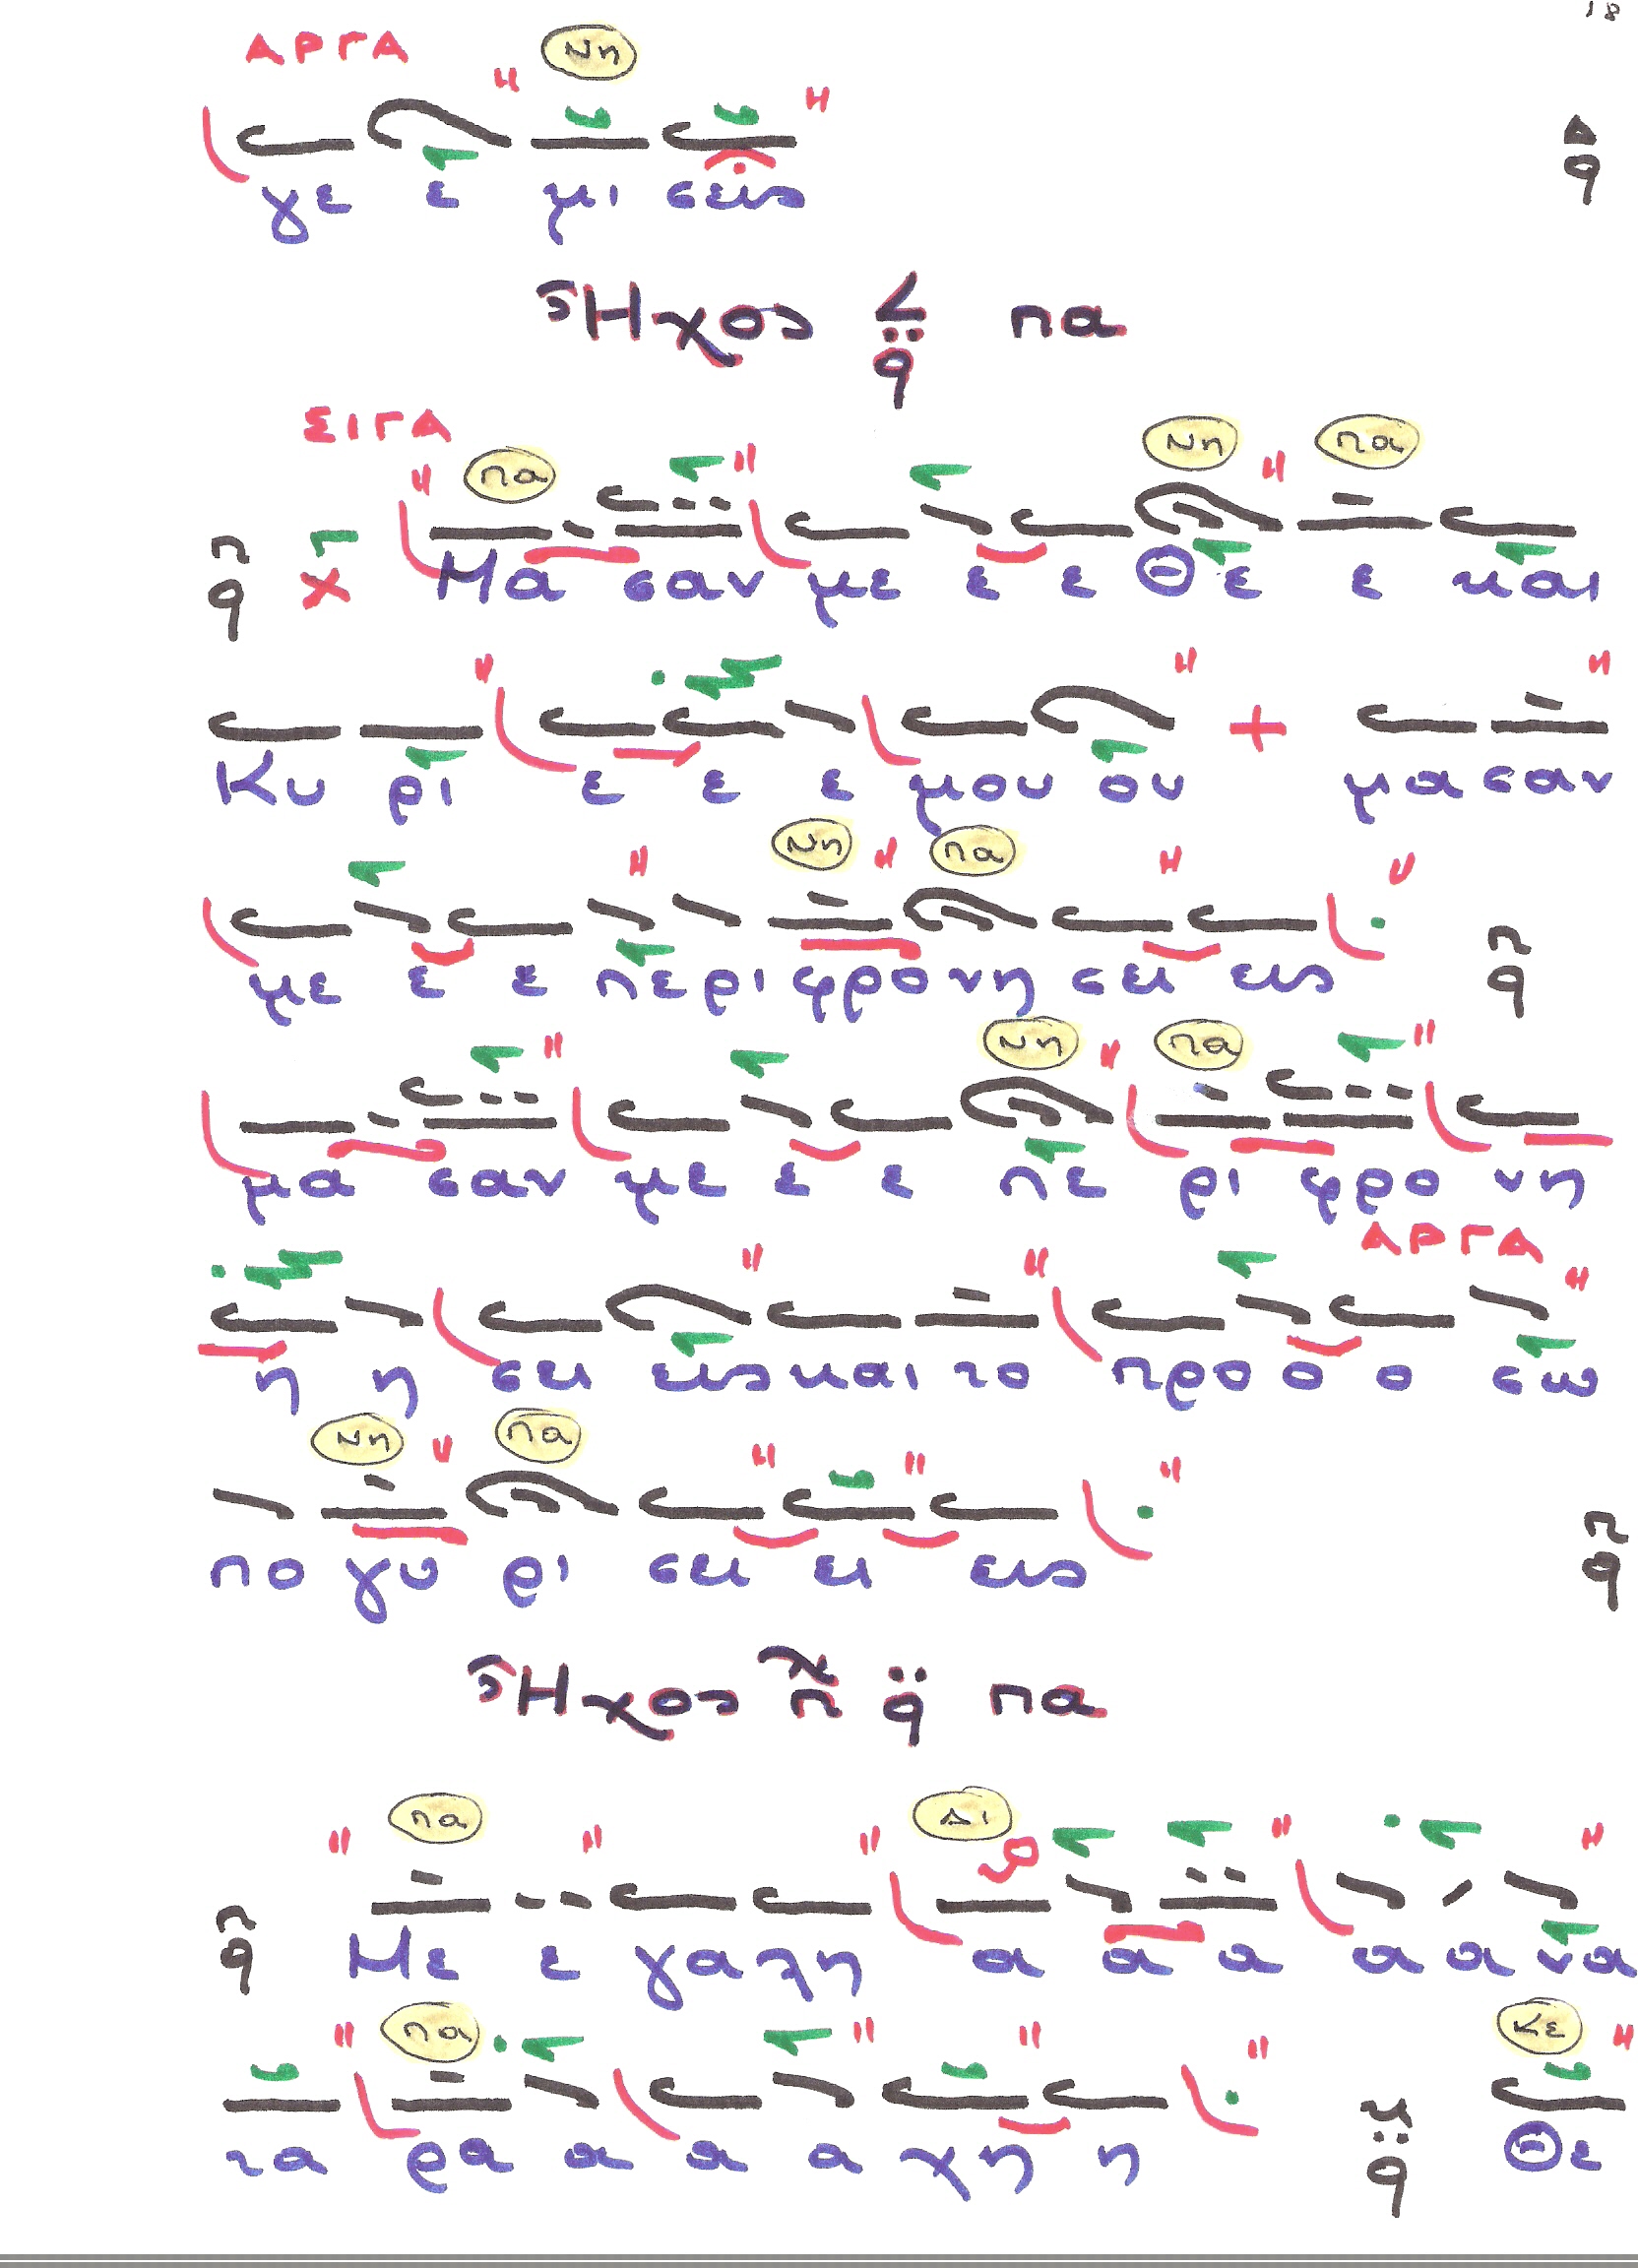 18
ΑΡΓΑ Νη
γε ε μι σεις
Ἦχος πα
ΣΙΓΑ
πα Νη πα
Μα σαν με ε ε Θε ε και
Κυ ρι ε ε ε μου ου μα σαν
Νη πα
με ε ε πε ρι φρο νη σει εις
Νη πα
μα σαν με ε ε πε ρι φρο νη
ΑΡΓΑ
η η σει εις και το προ ο ο σω
Νη πα
πο γυ ρι σει ει εις
Ἦχος πα
πα Δι
Με ε γα λη α α α α α να
πα Κε
τα ρα α α α χη η Θε